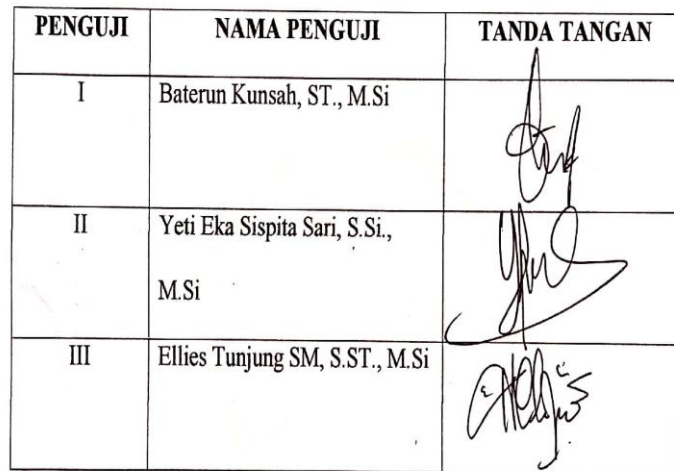 PENGUJI NAMA PENGUJI TANDA TANGAN
I Baterun Kunsah, ST., M.Si
II Yeti Eka Sispita Sari, S.Si.,
M.Si
III Ellies Tunjung SM, S.ST., M.Si